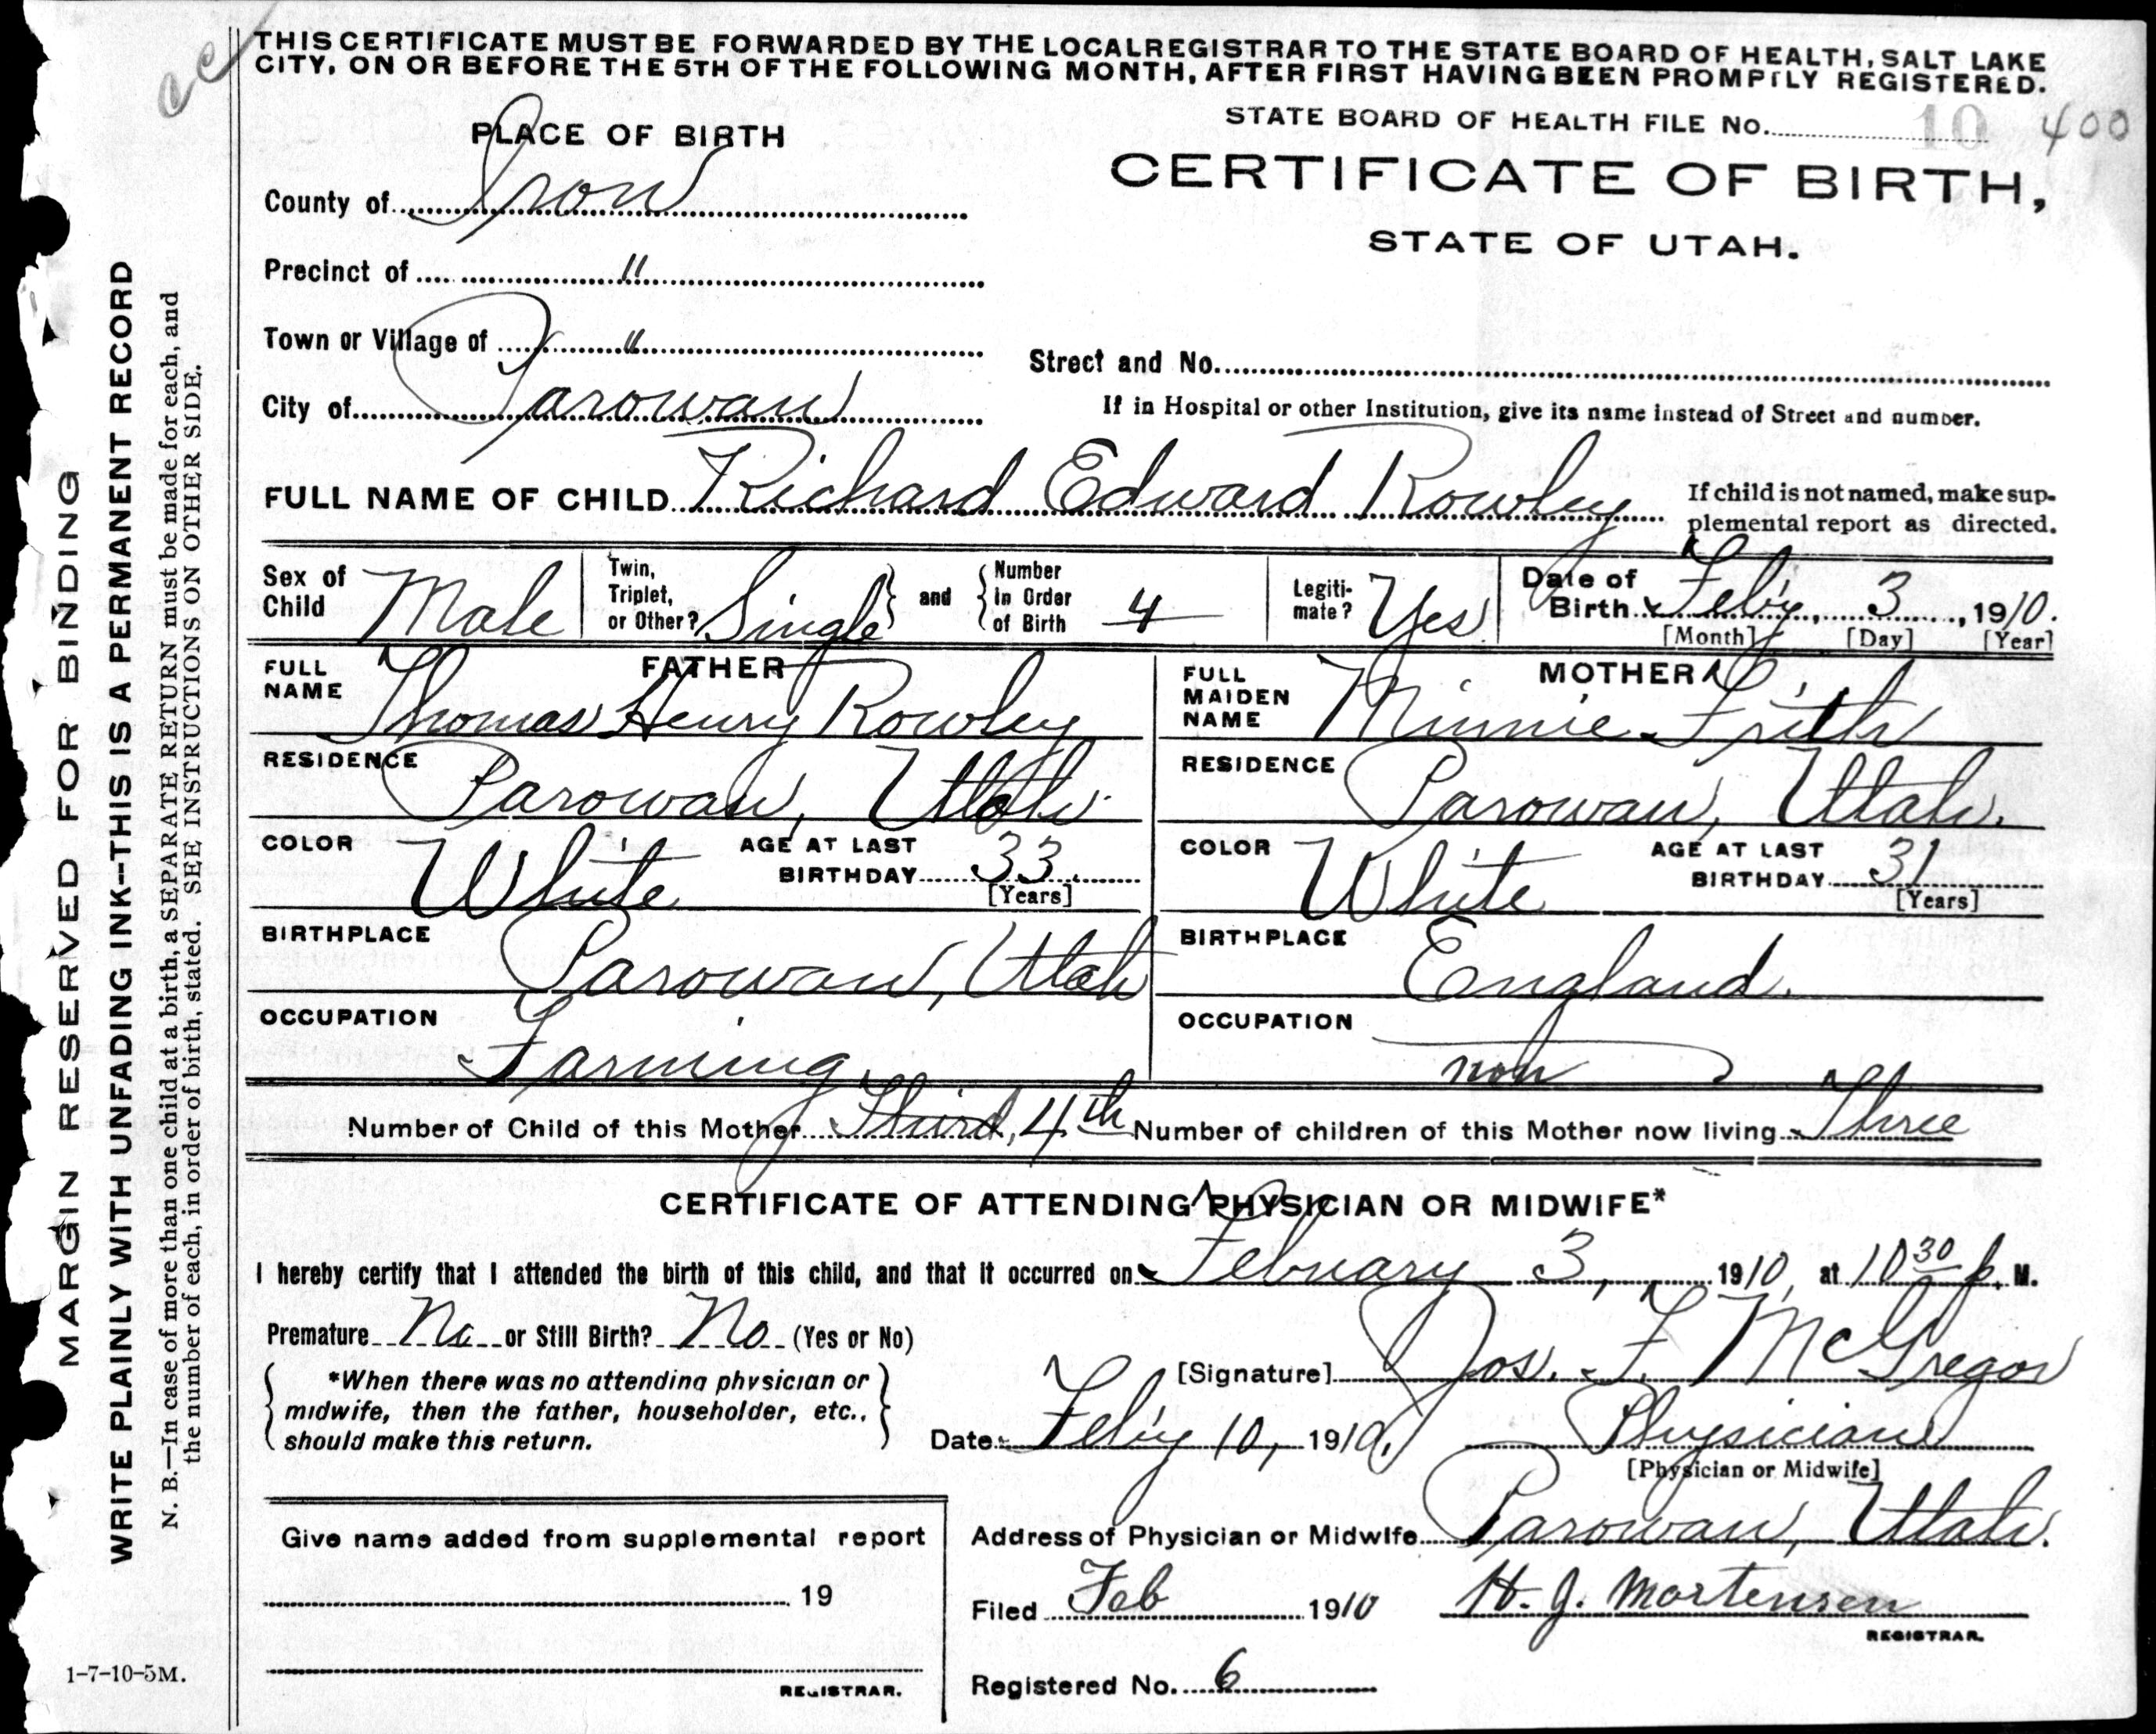 THIS CERTIFICATE MUST BE FORWARDED BY THE LOCAL REGISTRAR TO THE STATE BOARD OF HEALTH, SALT LAKE
CITY, ON OR BEFORE THE 5TH OF THE FOLLOWING MONTH, AFTER FIRST HAVING BEEN PROMPTLY REGISTERED.
STATE BOARD OF HEALTH FILE No. 10 400
PLACE OF BIRTH
CERTIFICATE OF BIRTH,
STATE OF UTAH.
County of Iron
Precinct of "
Town or Village of "
Street and No.
City of Parowan
If in Hospital or other Institution, give its name instead of Street and number.
FULL NAME OF CHILD Richard Edward Rowley
If child is not named, make sup-
plemental report as directed.
Sex of Child Male
Twin, Triplet, or Other? Single and Number in Order of Birth 4
Legiti-mate? Yes
Date of Birth Feb'y, 3, 1910.
[Month] [Day] [Year]
FATHER
FULL NAME Thomas Henry Rowley
RESIDENCE Parowan, Utah
COLOR White AGE AT LAST BIRTHDAY 33
[Years]
BIRTHPLACE Parowan, Utah
OCCUPATION Farming
MOTHER
FULL MAIDEN NAME Minnie Frith
RESIDENCE Parowan, Utah.
COLOR White AGE AT LAST BIRTHDAY 31
[Years]
BIRTHPLACE England.
OCCUPATION non
Number of Child of this Mother Third, 4th Number of children of this Mother now living Three
CERTIFICATE OF ATTENDING PHYSICIAN OR MIDWIFE*
I hereby certify that I attended the birth of this child, and that it occurred on February 3, 1910, at 10 30 p. M.
Premature No or Still Birth? No (Yes or No)
*When there was no attending physician or
midwife, then the father, householder, etc.,
should make this return.
[Signature] Jos. F. McGregor
Date Feb'y 10, 1910. Physician
[Physician or Midwife]
Address of Physician or Midwife Parowan, Utah.
Give name added from supplemental report
19
REGISTRAR.
Filed Feb 1910 H. J. Mortensen
REGISTRAR.
Registered No. 6
MARGIN RESERVED FOR BINDING
WRITE PLAINLY WITH UNFADING INK--THIS IS A PERMANENT RECORD
N. B.—In case of more than one child at a birth, a SEPARATE RETURN must be made for each, and
the number of each, in order of birth, stated. SEE INSTRUCTIONS ON OTHER SIDE.
1-7-10-5M.